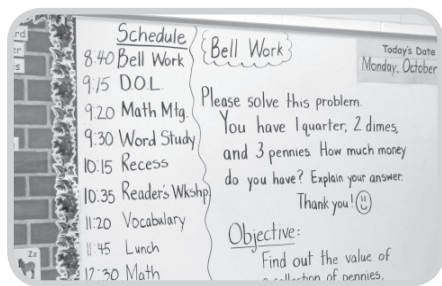 Schedule
8:40 Bell Work
9:15 D.O.L.
9:20 Math Mtg.
9:30 Word Study
10:15 Recess
10:35 Reader's Wkshp
11:20 Vocabulary
11:45 Lunch
12:30 Math
Bell Work
Please solve this problem.
You have 1 quarter, 2 dimes,
and 3 pennies. How much money
do you have? Explain your answer.
Thank you!
Objective:
Find out the value of
a collection of pennies,
Today's Date
Monday, October
Zz